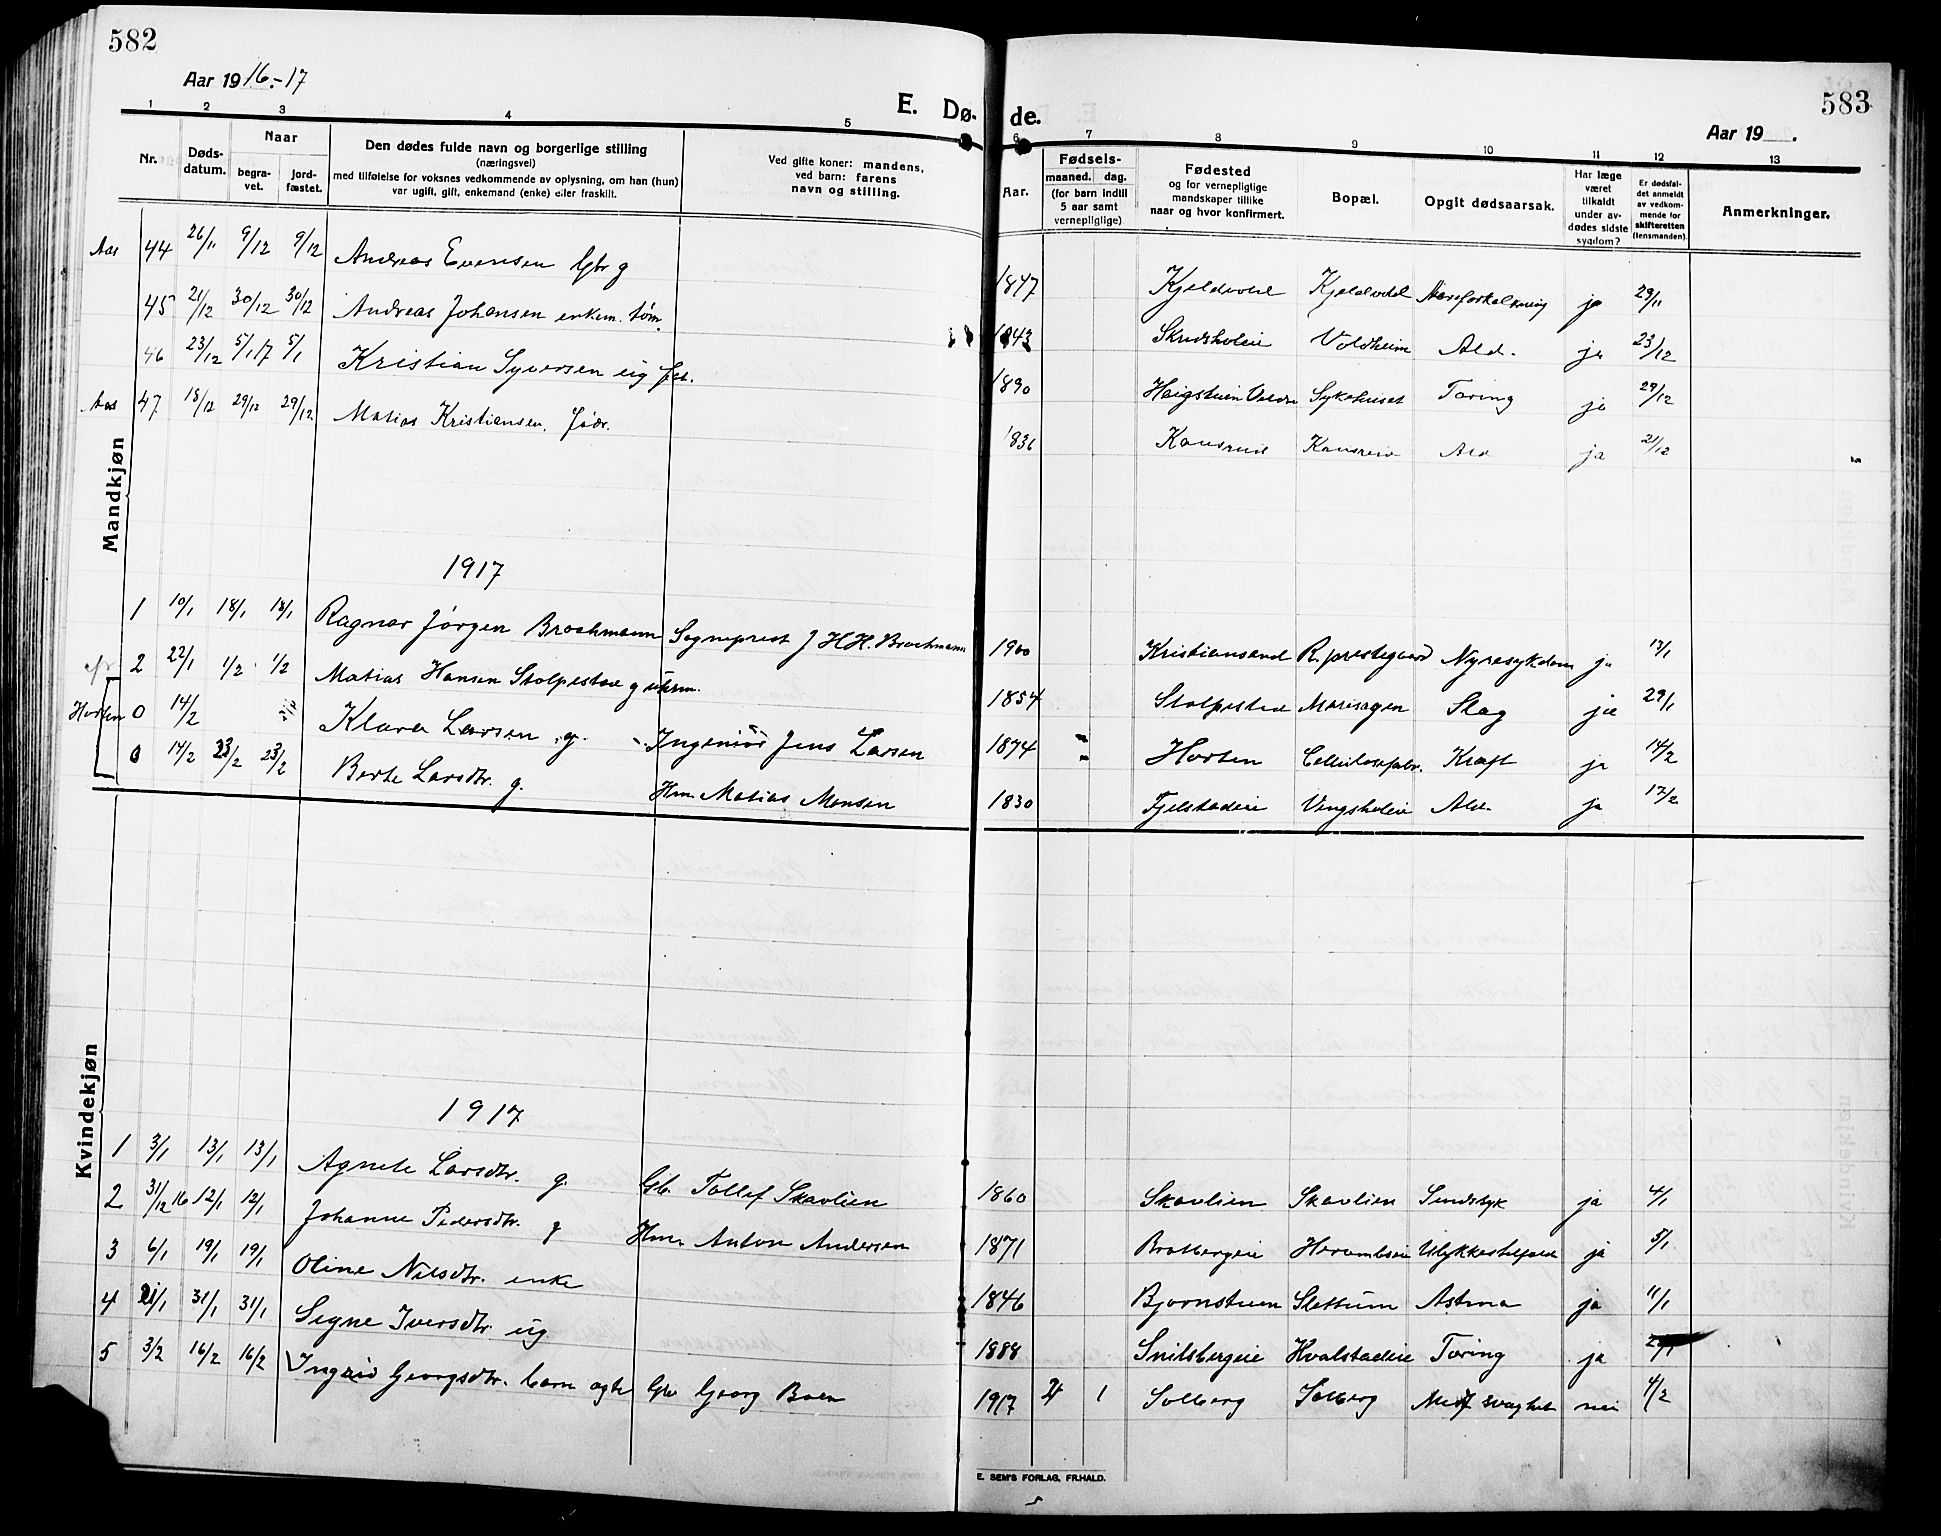 582
Aar 1916.-17
E. Dø- de.
583
Aar 19 .
1 2 3 4 5 6 7 8 9 10 11 12 13
Nr. Døds-datum. Naar begra-vet. jord-fæstet.
Den dødes fulde navn og borgerlige stilling
(næringsvei)
med tilføielse for voksnes vedkommende av oplysning, om han (hun)
var ugift, gift, enkemand (enke) eller fraskilt.
Ved gifte koner: mandens,
ved barn: farens
navn og stilling.
Aar.
Fødsels-
maaned. dag.
(for barn indtil
5 aar samt
vernepligtige)
Fødested
og for vernepligtige
mandskaper tillike
naar og hvor konfirmert.
Bopæl.
Opgit dødsaarsak.
Har læge
været
tilkaldt
under av-
dødes sidste
sygdom?
Er dødsfal-
det anmeldt
av vedkom-
mende for
skifteretten
(lensmanden).
Anmerkninger.
Mandkjøn
Aas 44 26/11 9/12 9/12 Andreas Evensen Gbr g 1847 Kjeldvold Kjeldvold ja 29/11
45 21/12 30/12 30/12 Andreas Johansen enkem. tøm. 1843 Voldheim Ald. ja 23/12
46 23/12 5/1 17 5/1 Kristian Syversen ug 1890 Sykehuset Tæring ja 29/12
Aas 47 18/12 29/12 29/12 Matias Kristiansen. Fødr. 1836 Kausrud Kausrud Ald ja 21/12
1917
1 10/1 18/1 18/1 Ragnar Jørgen Brochmann Sogneprest J H H. Brochmann 1900 Kristiansand R. prestegaard Nyresykdom ja 13/1
2 22/1 1/2 1/2 Matias Hansen Stolpestad g 1854 Stolpestad Slag ja 29/1
Horten 0 14/2 Klara Larsen g. Ingeniør Jens Larsen 1874 Horten Cellulosefabr. Kræft ja 14/2
0 14/2 23/2 23/2 Berte Larsdtr. g. Hm. Matias Monsen 1830 Fjelstadeie Ald. ja 17/2
Kvindekjøn
1917
1 3/1 13/1 13/1 Agnete Larsdtr. g. Gb. Tollef Skavlien 1860 Skavlien Skavlien Sindssyk ja 4/1
2 31/12 16 12/1 12/1 Johanne Pedersdtr. g Hm. Anton Andersen 1871 Bratbergeie Ulykkestilfæld ja 5/1
3 6/1 19/1 19/1 Oline Nilsdtr. enke 1846 Bjørnstuen Slettum Astma ja 11/1
4 21/1 31/1 31/1 Signe Iversdtr. ug 1888 Snilsbergeie Hvalstadeie Tæring ja
5 3/2 16/2 16/2 Ingrid Georgsdtr. barn egte Gbr Georg Boen 1917 1 Solberg Solberg svaghet nei 4/2
E. SEM'S FORLAG, FR.HALD.